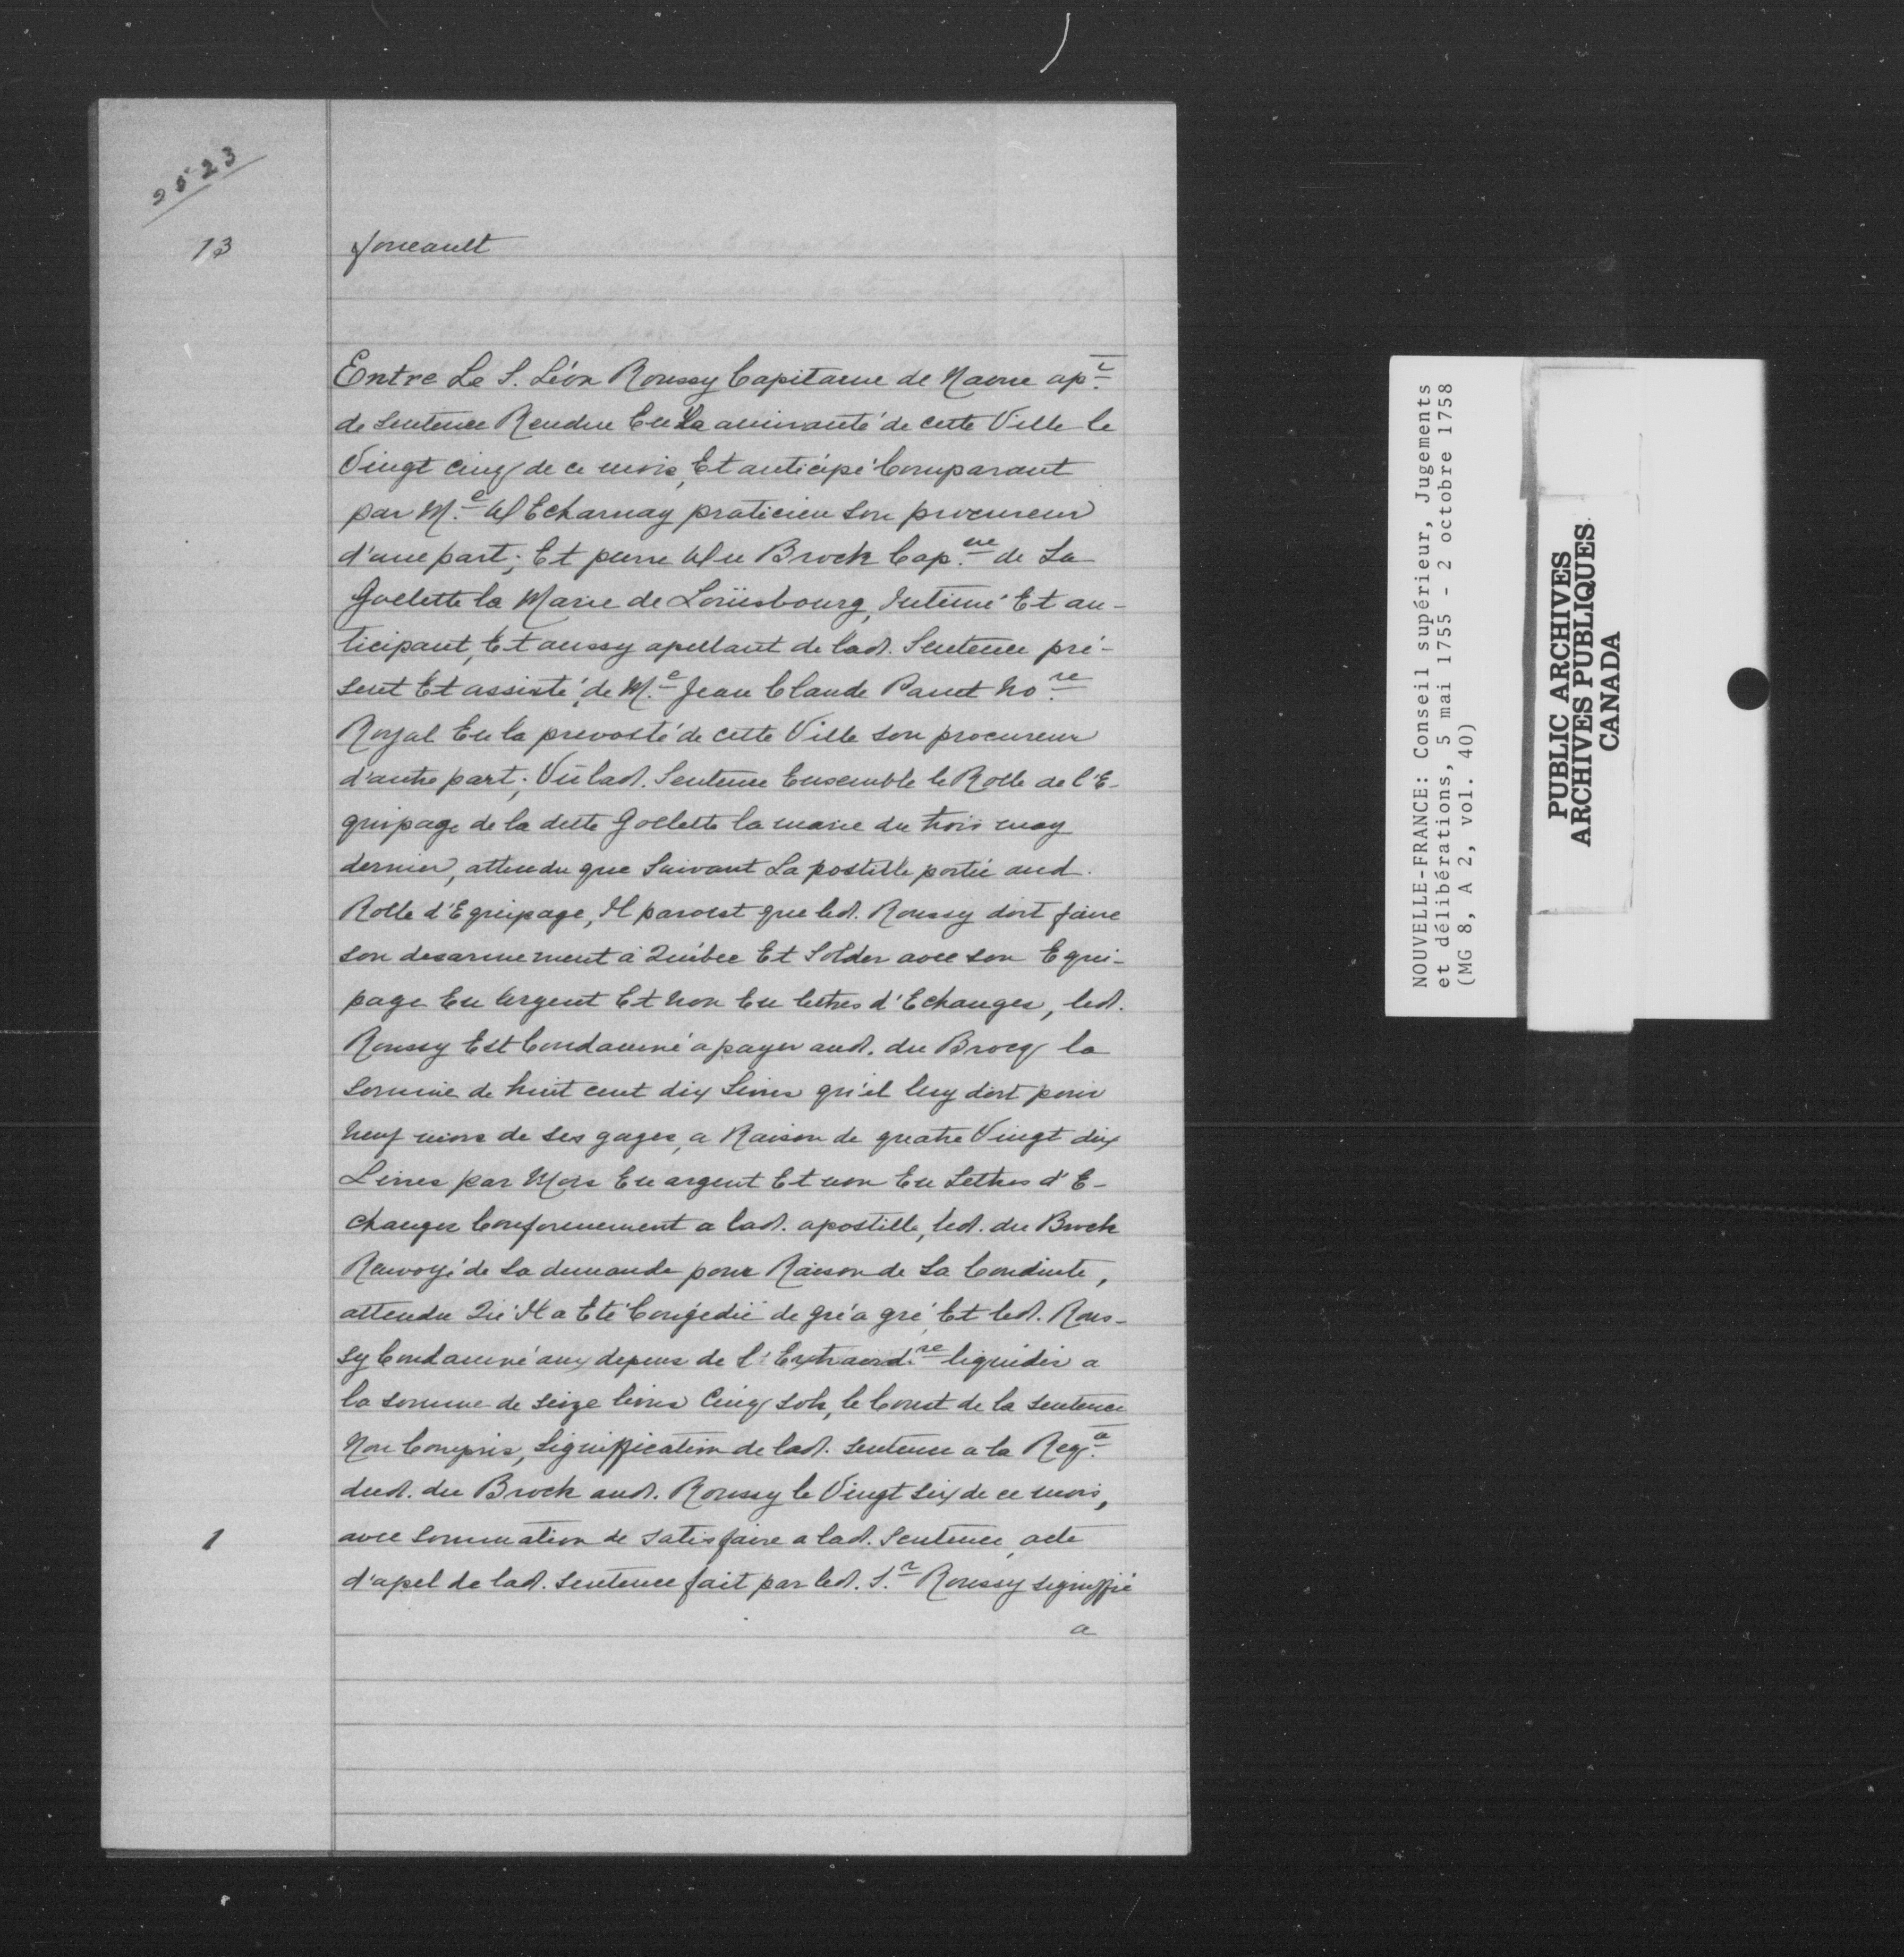 2523
13
foucault
Entre Le S. Léon Roussy Capitaine de Navire ap.t
de Sentence Rendue En La amirauté de cette Ville le
Vingt cinq de ce mois, Et anticipé Comparant
par M.e DEcharnay praticien son procureur
d'une part; Et pierre du Brock Cap.ne de La
Goelette la Marie de Loüisbourg, Intimé Et an-
ticipant, Et aussy apellant de lad. Sentence pré-
sent Et assisté, de M.e Jean Claude Panet No.re
Royal En la prevosté de cette Ville son procureur
d'autre part; Vû lad. Sentence Ensemble le Rolle de l'E-
quipage de la dette Goelette la marie du trois may
dernier, attendu que Suivant La postille portée aud.
Rolle d'Equipage, Il paroist que led. Roussy doit faire
son desarmement à Québec Et Solder avec son Equi-
page En Argent Et Non En lettres d'Echanges, led.
Roussy Est Condamné a payer aud. du Brocq la
somme de huit cent dix Livres qu'il luy doit pour
neuf mois de ses gages, a Raison de quatre Vingt dix
Livres par Mois En argent Et non En Lettres d'E-
changes Conformement a lad. apostille, led. du Brock
Renvoyé de sa demande pour Raison de sa Conduite,
attendu Qu'Il a Eté Congédié de gré a gré, Et led. Rous-
sy Condamné aux depens de l'Extraord.re liquidés a
la somme de seize livres Cinq sols, le Coust de la sentence
Non Compris, Signiffication de lad. sentence a la Req.a
dud. du Brock aud. Roussy le Vingt six de ce mois,
1
avec sommation de satisfaire a lad. Sentence, acte
d'apel de lad. sentence fait par led. S.r Roussy signiffié
a
NOUVELLE-FRANCE: Conseil supérieur, Jugements
et délibérations, 5 mai 1755 - 2 octobre 1758
(MG 8, A 2, vol. 40)
PUBLIC ARCHIVES
ARCHIVES PUBLIQUES
CANADA